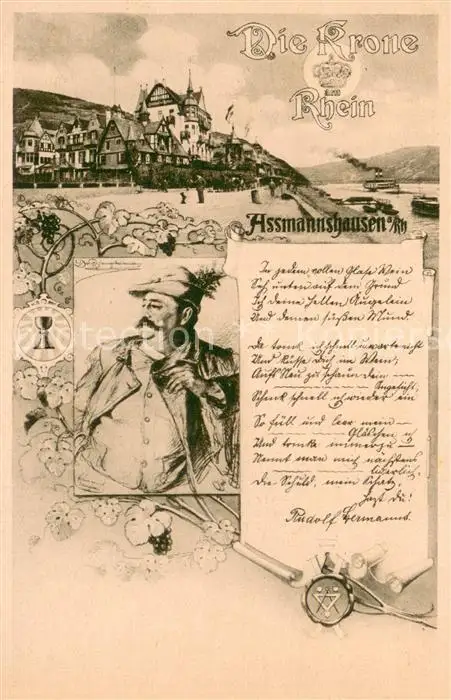 Die Krone
am
Rhein
Assmannshausen a/Rh
In jedem vollen Glase Wein
Seh' unten auf dem Grund
Ich deine hellen Äugelein
Und deinen süßen Mund
Da trink ich schnell u. warte nicht
Und küsse dich im Wein,
Aufs Neu zu schaun dein —
Angesicht,
Schenk schnell ich wieder ein
So füll und leer mein —
Gläschen ich
Und trinke immerzu
Nennt man mich nächstens
liederlich,
Die Schuld, mein Schatz,
hast du!
Rudolf Hermanns.